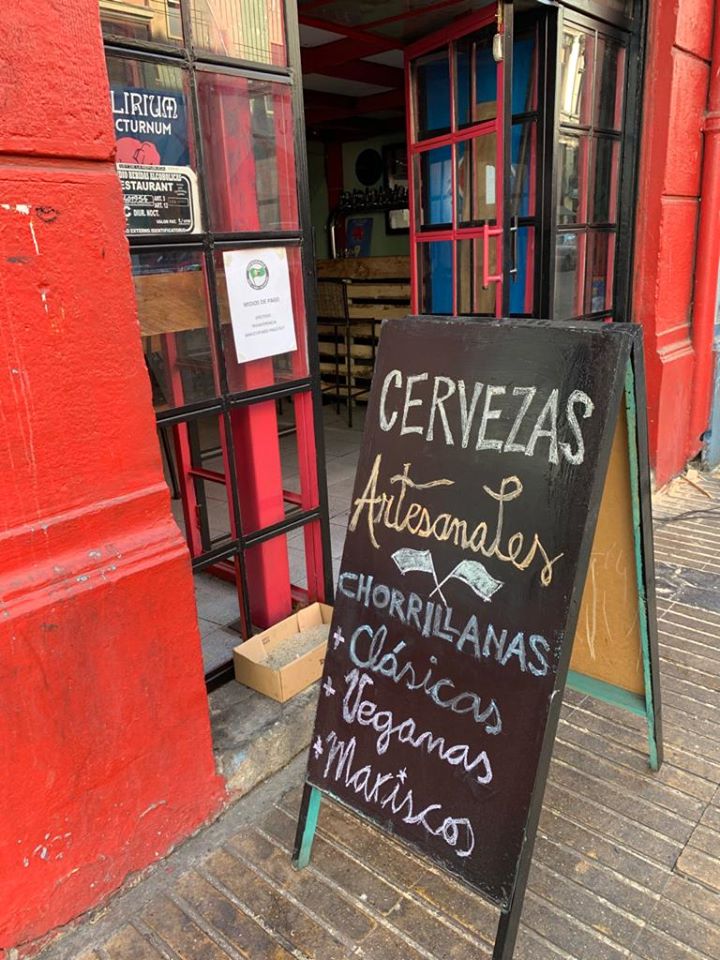 LIRIUM
CTURNUM
RESTAURANT
DIUR. NOCT.
MEDIOS DE PAGO
CERVEZAS
Artesanales
CHORRILLANAS
+ Clásicas
+ Veganas
+ Mariscos